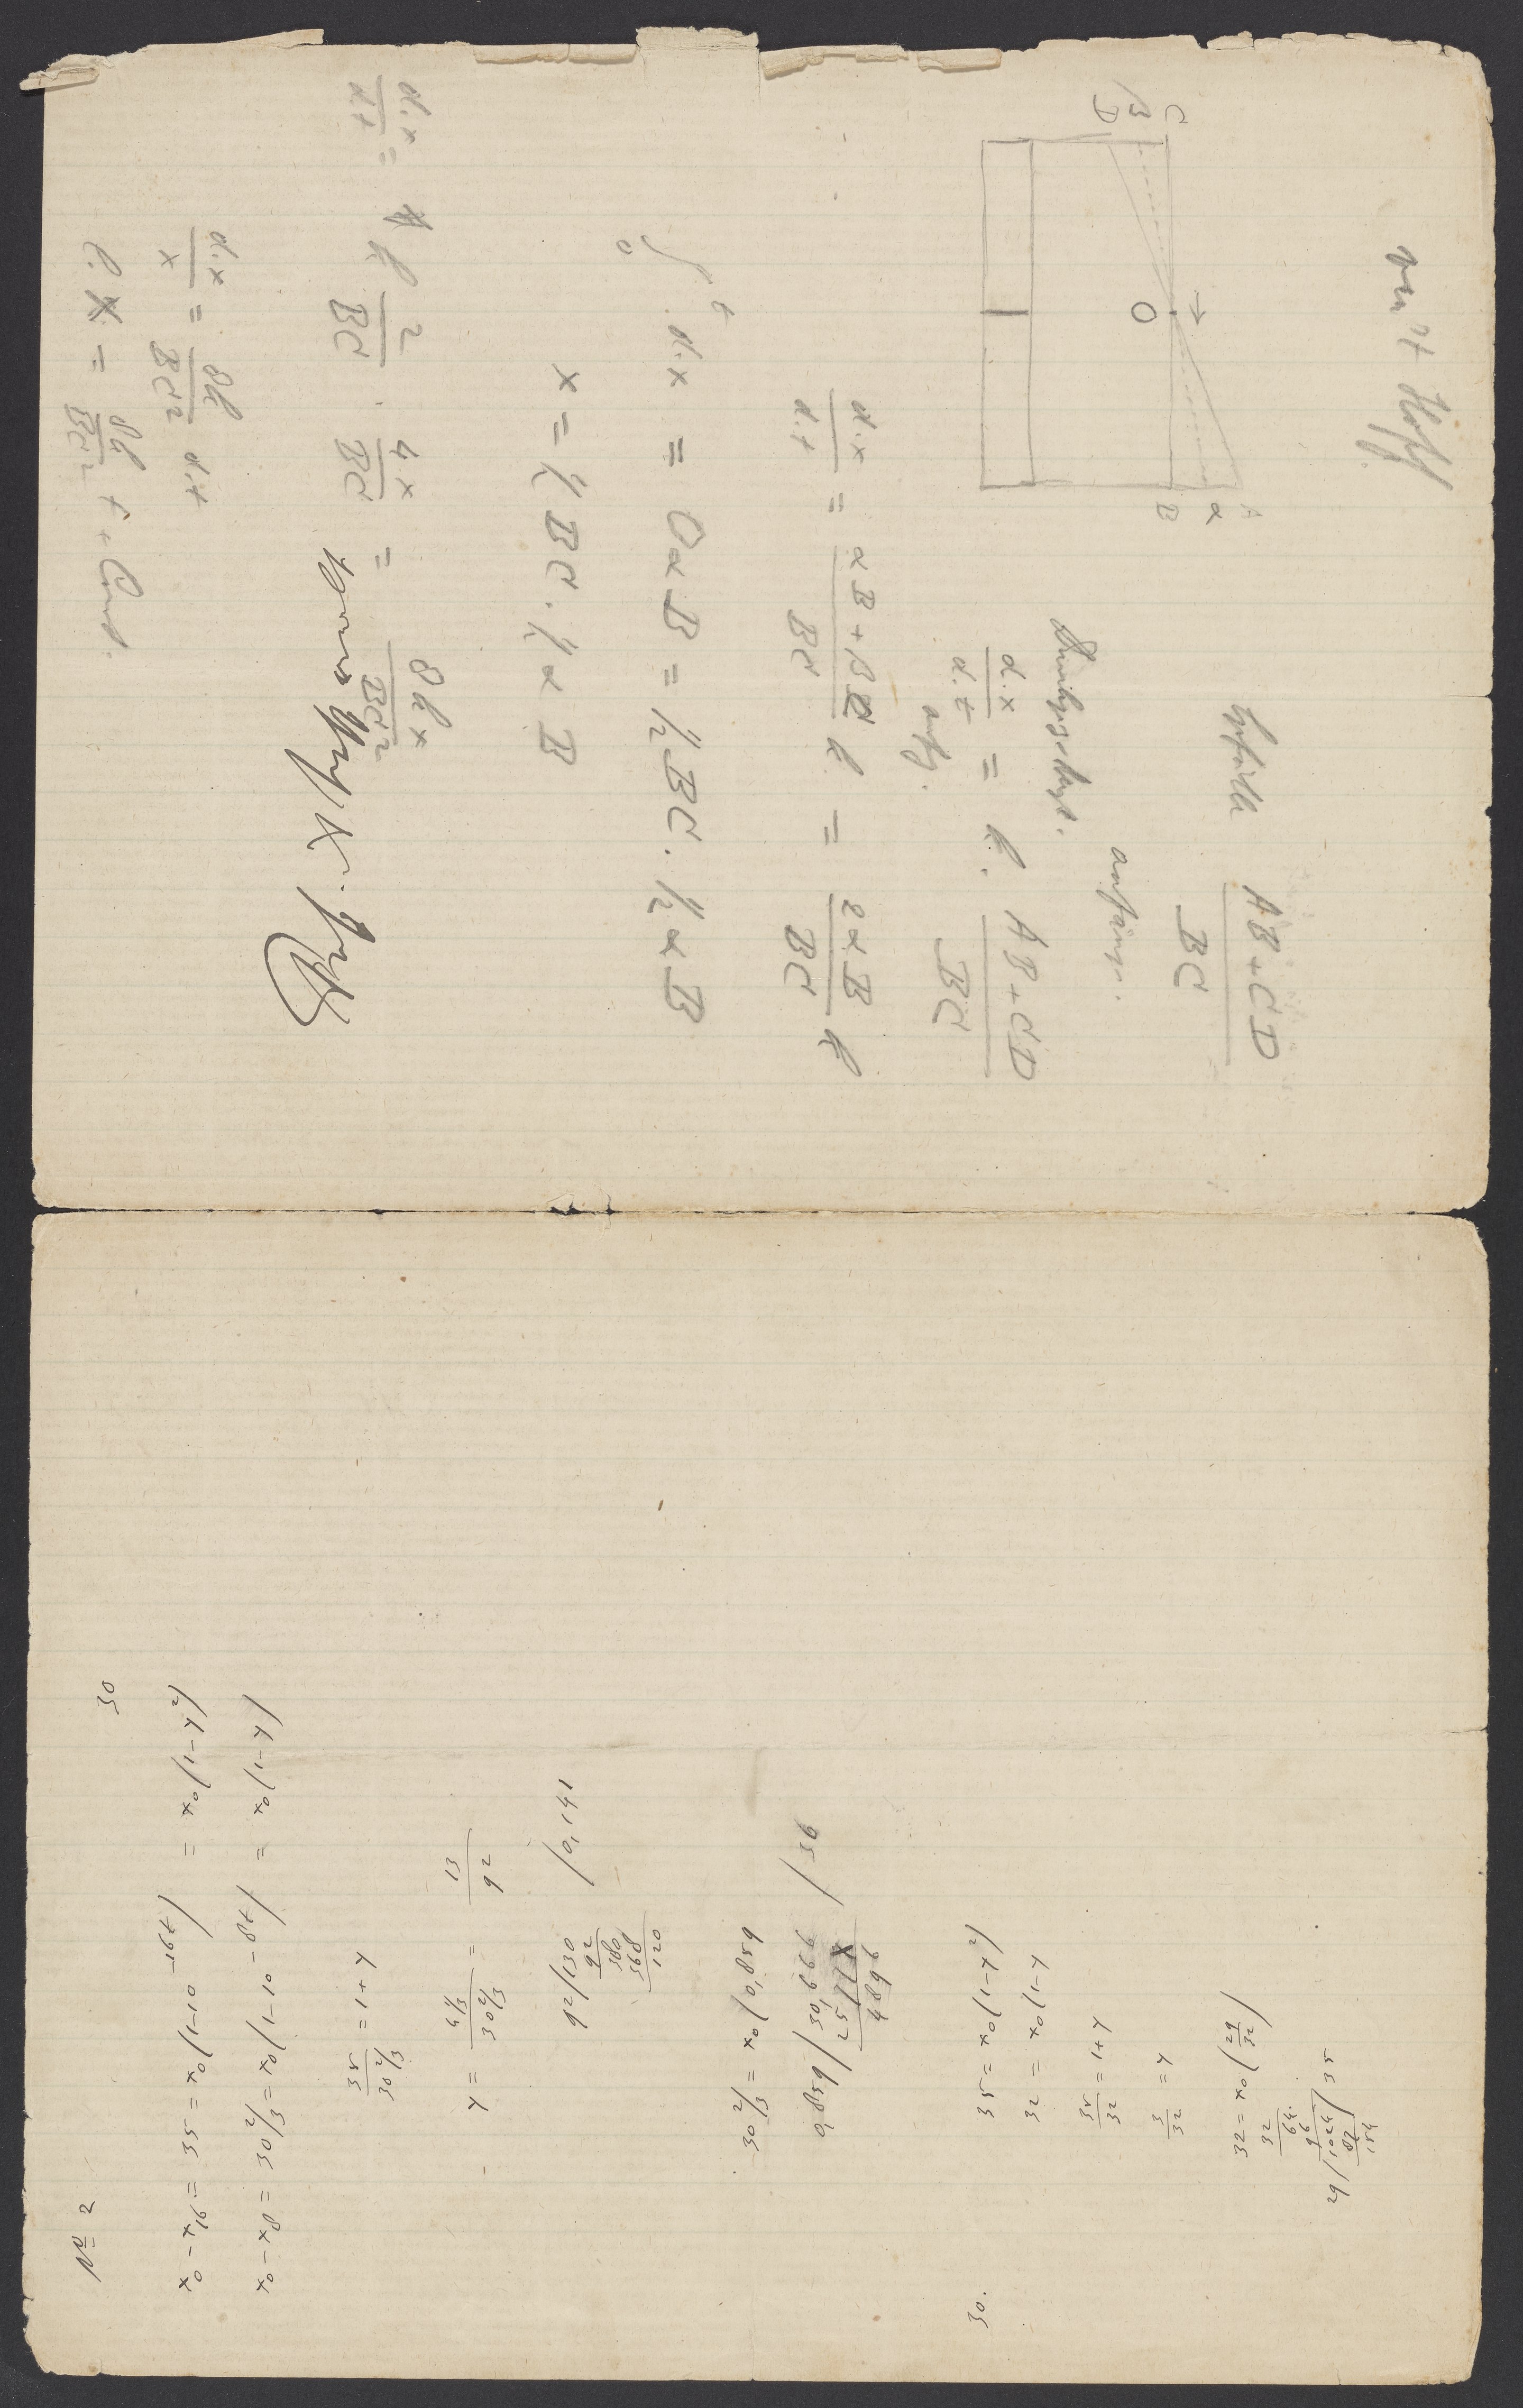 van't Hoff
C
β
D
O
A
α
B
Gefälle AB + CD
BC
anfängl.
d.x
d.t = k. AB + CD
BC
anfg.
d.x
d.t = αB + βC
BC k = 2αB
BC k
∫ 0 t d.x = OαB = ½ BC. ½ αB
x = ½ BC. ½ αB
d.x
d.t = k 2
BC . 4x
BC = 8kx
BC²
d.x
x = 8k
BC² d.t
l. x = 8k
BC² t + Const.
№ 2
30
x₀ - x₁₆ = 35 = x₀ (1-10⁻¹⁶ᵗ) = x₀ (1-y²)
x₀ - x₈ = 30⅔ = x₀ (1-10⁻⁸ᵗ) = x₀ (1-y)
35
30⅔ = 1+y
y = 4⅓
30⅔ = 13
92
92/130 /0,141
92
380
368
120
30⅔ = x₀ (0,859
0,859/30,666 /36
4896
30.
35 = x₀ (1-y²)
32 = x₀ (1-y
35
32 = 1+y
3
32 = y
32 = x₀ (29
32)
32
64.
96
29/1024/35
87
154